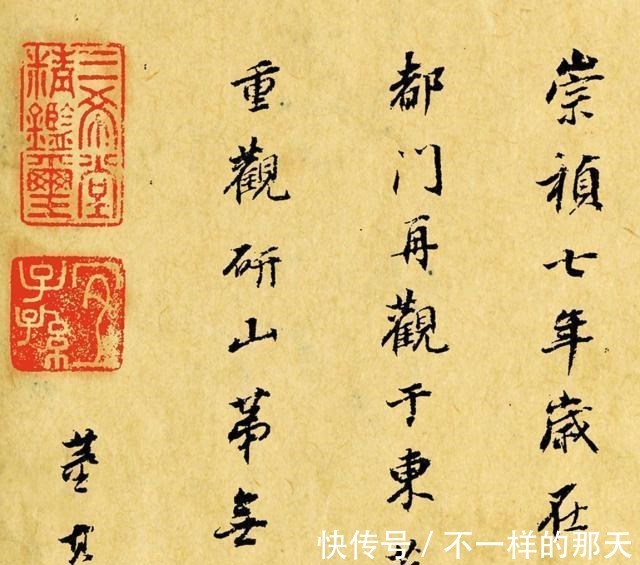 崇禎七年歲在
都門再觀于東
重觀研山第無
董其
三希堂
精鑑璽
宜
子孫
快传号 / 不一样的那天